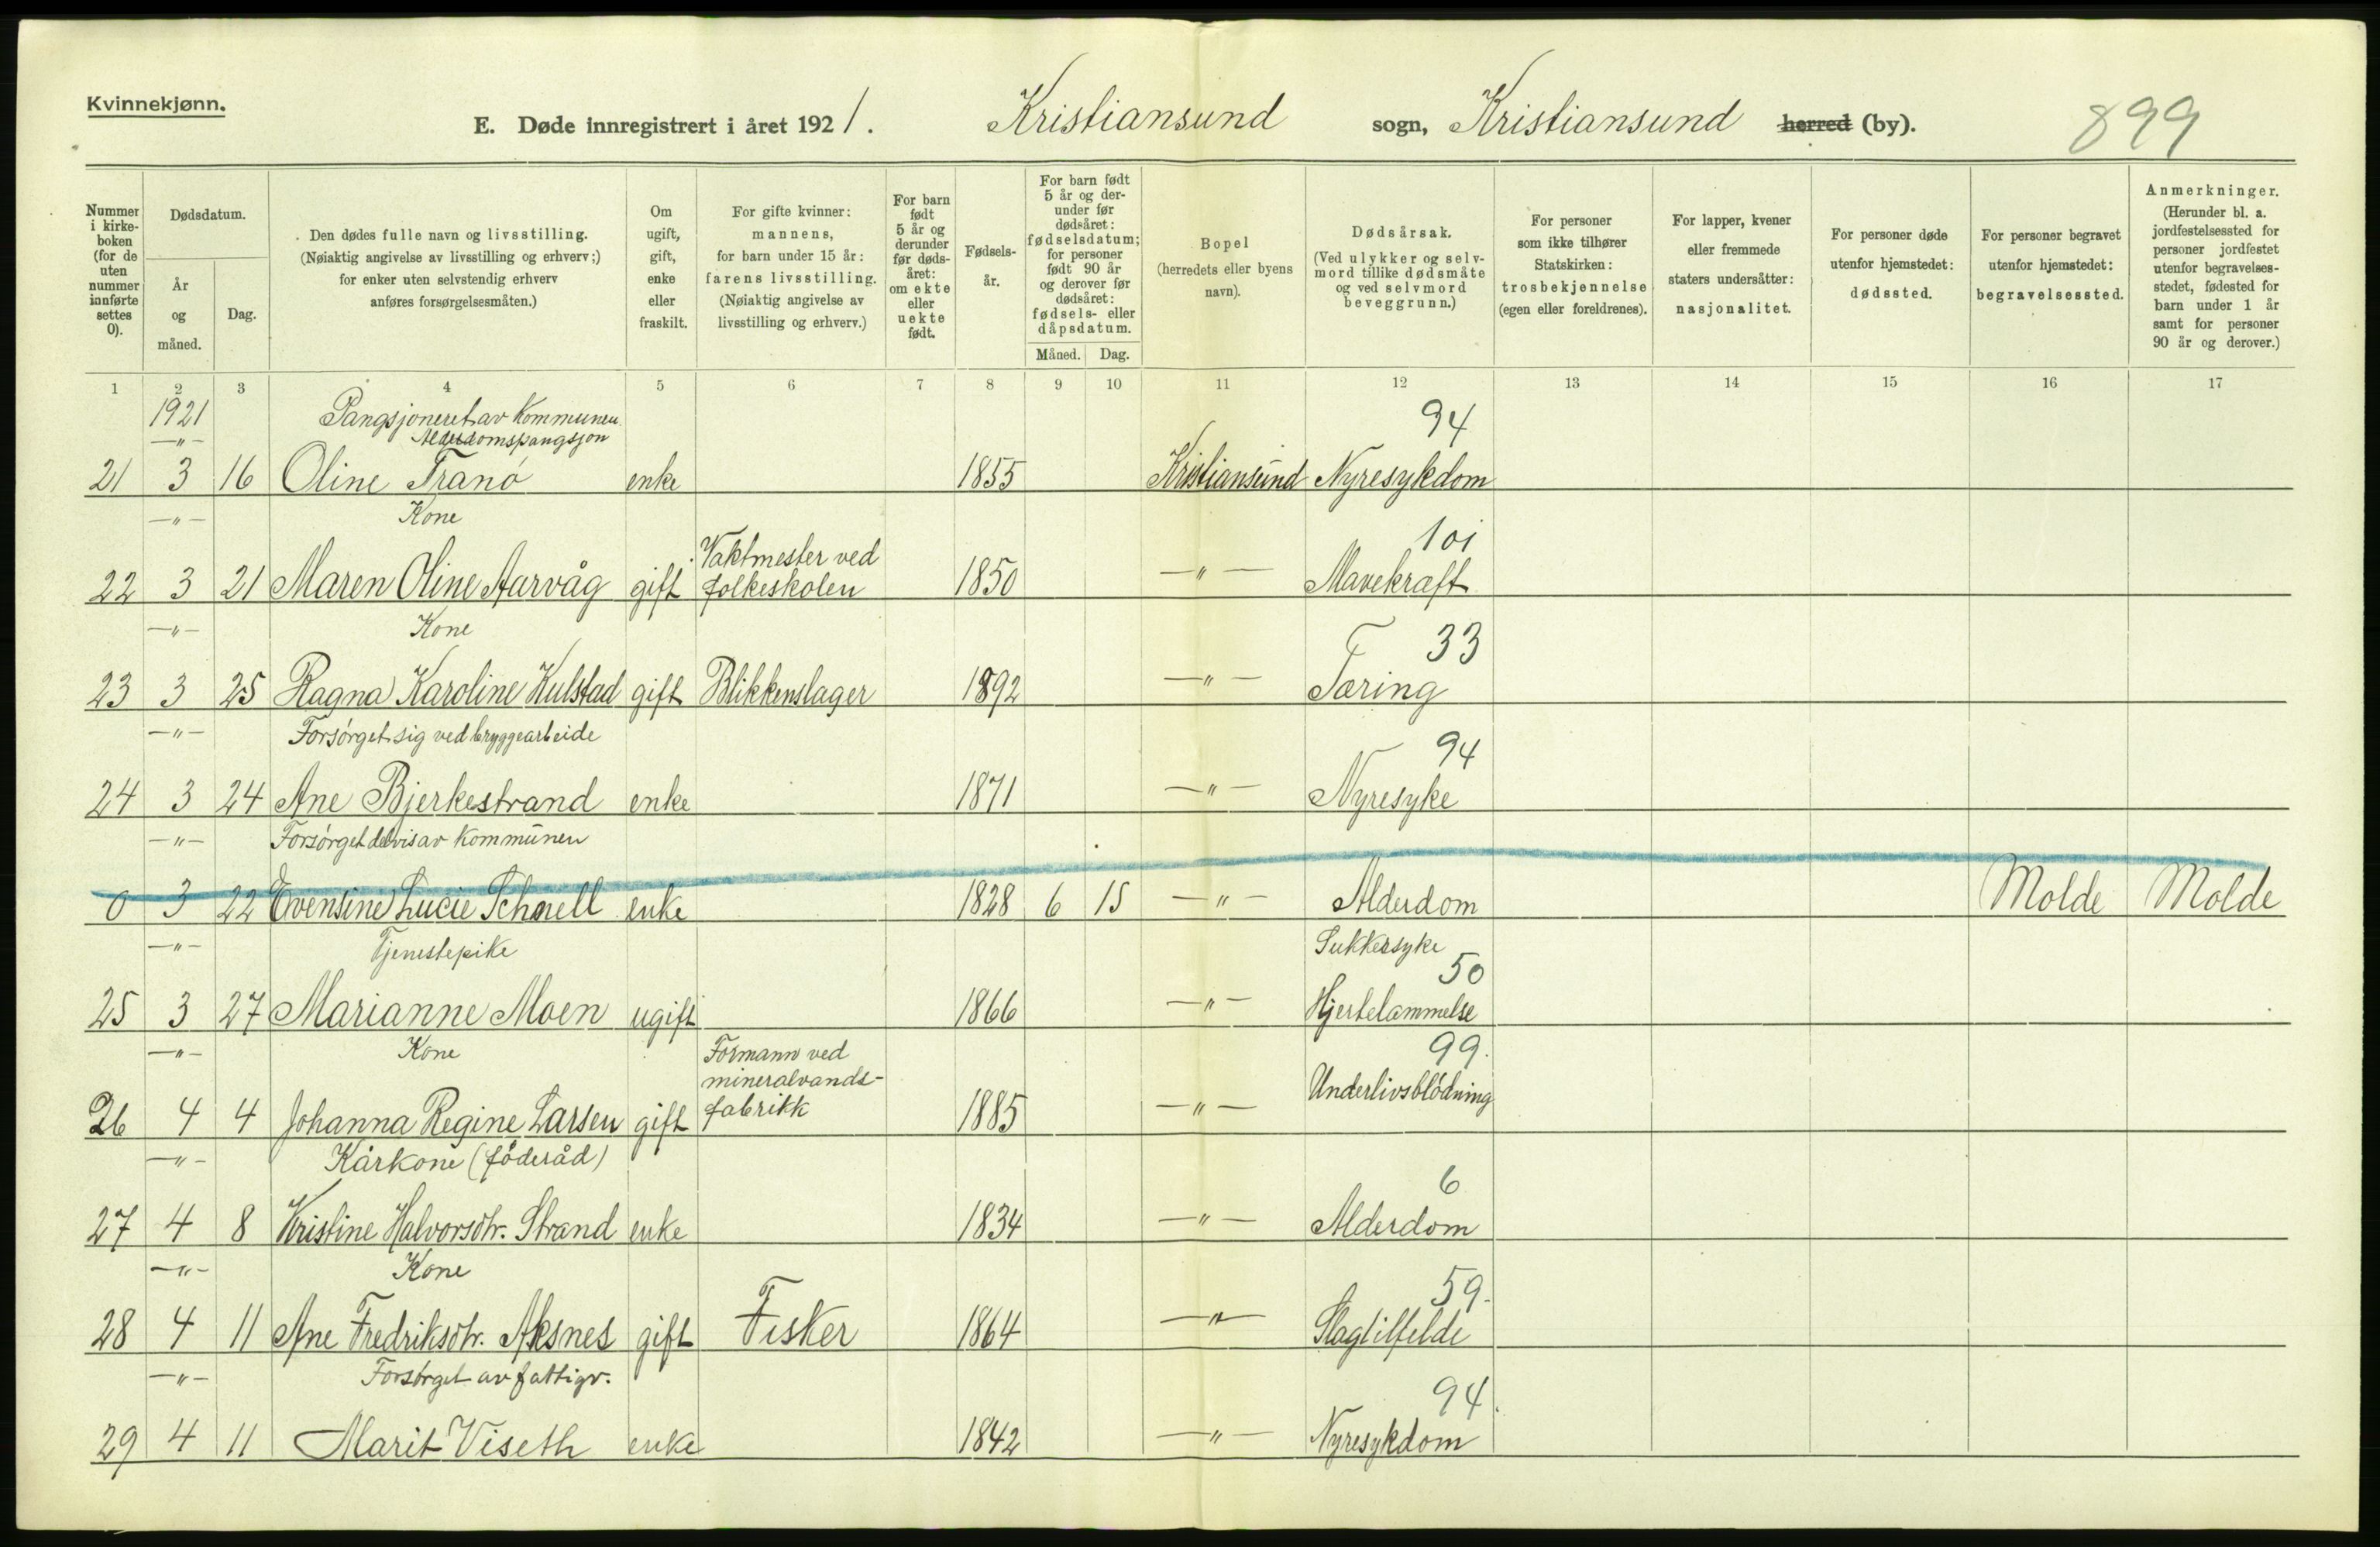 Kvinnekjønn.
E. Døde innregistrert i året 1921. Kristiansund sogn, Kristiansund herred (by). 899
Nummer i kirkeboken (for de uten nummer innførte settes 0).
Dødsdatum.
År og måned.
Dag.
Den dødes fulle navn og livsstilling. (Nøiaktig angivelse av livsstilling og erhverv;) for enker uten selvstendig erhverv anføres forsørgelsesmåten.)
Om ugift, gift, enke eller fraskilt.
For gifte kvinner: mannens, for barn under 15 år: farens livsstilling. (Nøiaktig angivelse av livsstilling og erhverv.)
For barn født 5 år og derunder før dødsåret: om ekte eller uekte født.
Fødselsår.
For barn født 5 år og derunder før dødsåret: fødselsdatum; for personer født 90 år og derover før dødsåret: fødsels- eller dåpsdatum.
Måned. Dag.
Bopel (herredets eller byens navn).
Dødsårsak. (Ved ulykker og selvmord tillike dødsmåte og ved selvmord beveggrunn.)
For personer som ikke tilhører Statskirken: trosbekjennelse (egen eller foreldrenes).
For lapper, kvener eller fremmede staters undersåtter: nasjonalitet.
For personer døde utenfor hjemstedet: dødssted.
For personer begravet utenfor hjemstedet: begravelsessted.
Anmerkninger. (Herunder bl. a. jordfestelsessted for personer jordfestet utenfor begravelsesstedet, fødested for barn under 1 år samt for personer 90 år og derover.)
1 2 3 4 5 6 7 8 9 10 11 12 13 14 15 16 17
1921 Pangsjoneret av Kommunen 94
—"— Alderdomspangsjon
21 3 16 Oline Tranö enke 1855 Kristiansund Nyresykdom
—"— Kone 101
Vaktmester ved
22 3 21 Maren Oline Aarvåg gift folkeskolen 1850 —"— Mavekraft
—"— Kone 33
23 3 25 Ragna Karoline Kulstad gift Blikkenslager 1892 —"— Tæring
—"— Forsörget sig ved bryggearbeide 94
24 3 24 Ane Bjerkestrand enke 1871 —"— Nyresyke
—"— Forsörget delvis av Kommunen
0 3 22 Evensine Lucie Schnell enke 1828 6 15 —"— Alderdom Molde Molde
—"— Tjenestepike Sukkersyke
50
25 3 27 Marianne Moen ugift 1866 —"— Hjertelammelse
—"— Kone Formann ved 99.
mineralvands- Underlivsblödning
26 4 4 Johanna Regine Larsen gift fabrikk 1885 —"—
—"— Kårkone (föderåd) 6
27 4 8 Kristine Halvorsdtr. Strand enke 1834 —"— Alderdom
—"— Kone 59.
28 4 11 Ane Fredriksdtr. Aksnes gift Fisker 1864 —"— Slagtilfelde
—"— Forsörget av fattigv. 94
29 4 11 Marit Viseth enke 1842 —"— Nyresykdom